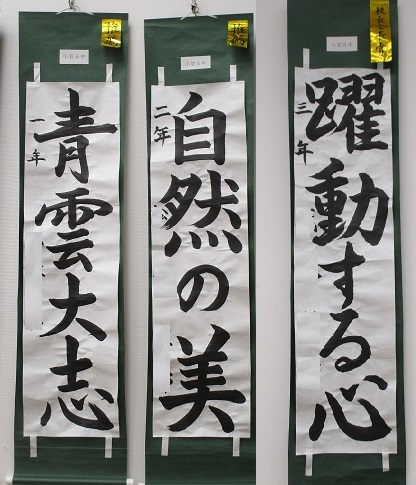 青雲大志
一年
自然の美
二年
躍動する心
三年